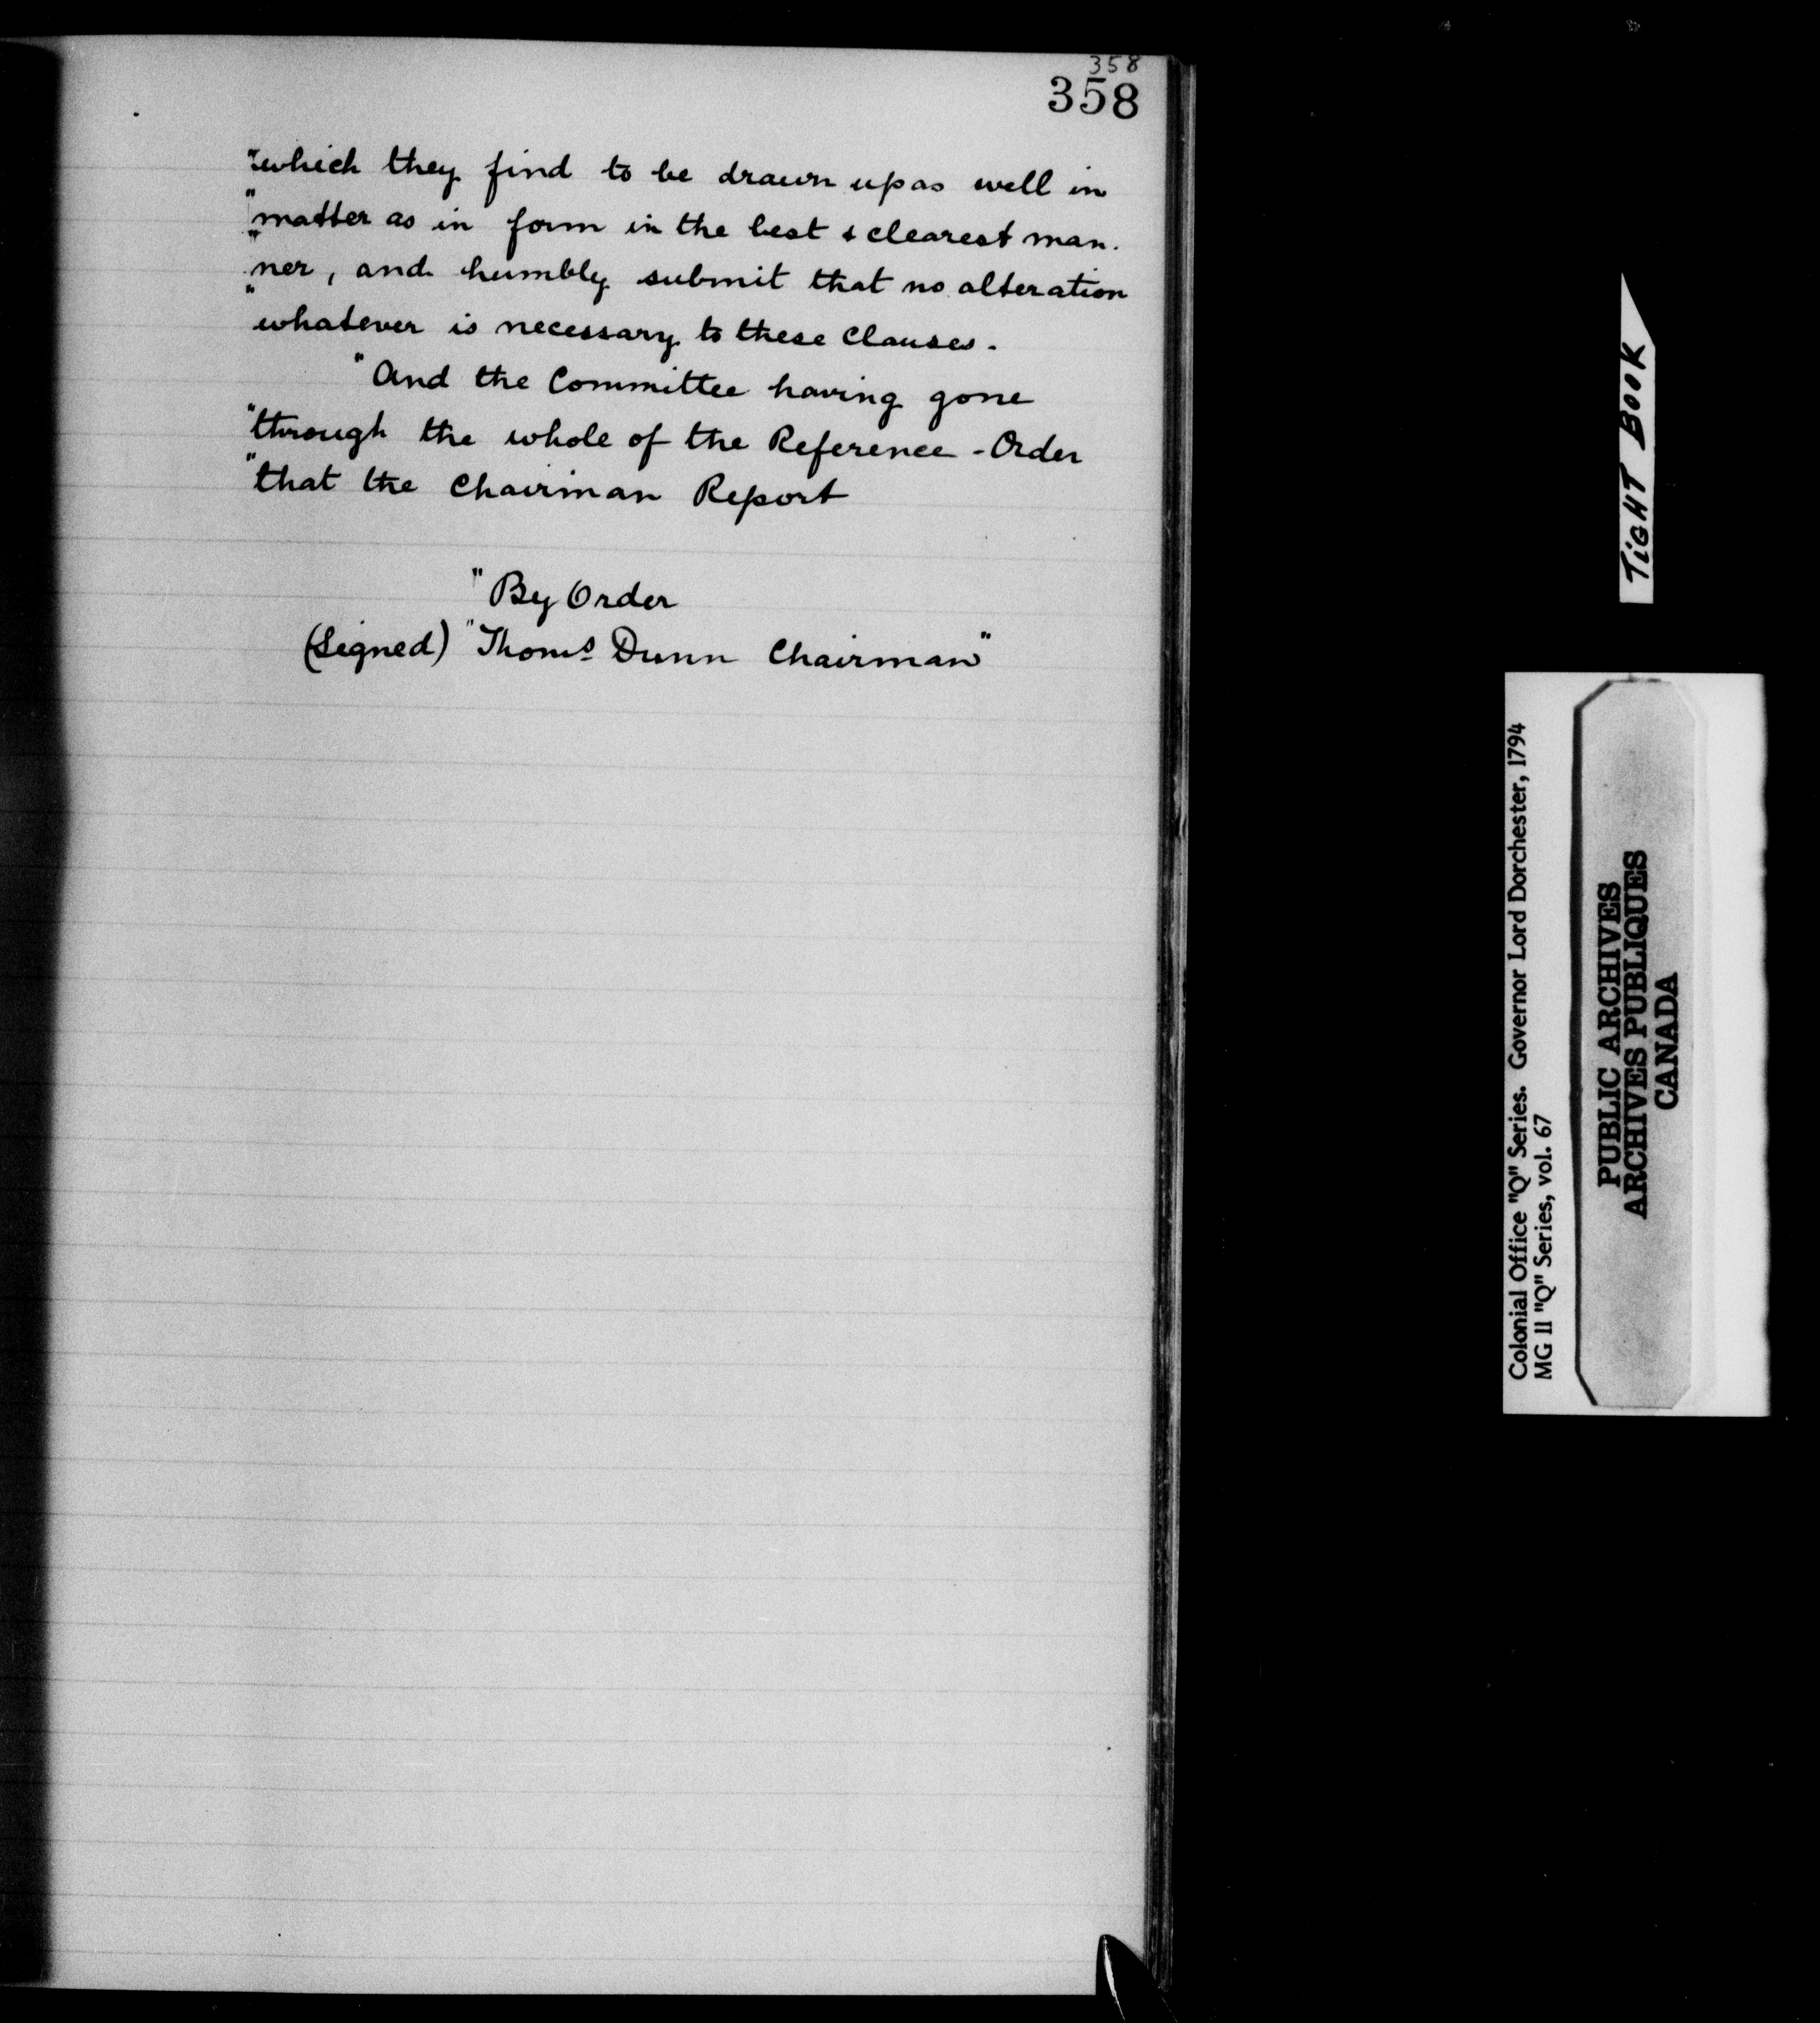 358
358
"which they find to be drawn up as well in
"matter as in form in the best & clearest man-
"ner, and humbly submit that no alteration
"whatever is necessary to these Clauses.
"And the Committee having gone
"through the whole of the Reference - Order
"that the Chairman Report
"By Order
(Signed) "Thoms Dunn Chairman"
TiGHT BOOK
Colonial Office "Q" Series. Governor Lord Dorchester, 1794
MG 11 "Q" Series, vol. 67
PUBLIC ARCHIVES
ARCHIVES PUBLIQUES
CANADA